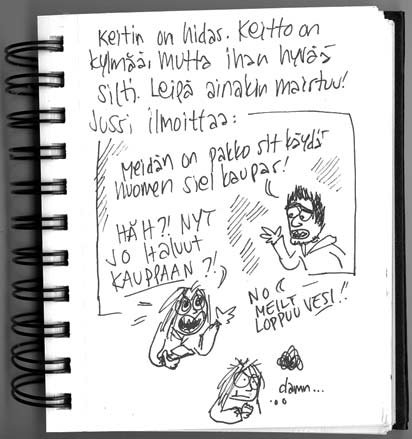 Keitin on hidas. Keitto on
kylmää, mutta ihan hyvää
silti. Leipä ainakin maistuu!
Jussi ilmoittaa:
Meidän on pakko sit käydä
huomen siel kaupas!
HÄH?! NYT
JO HALUUT
KAUPPAAN?!
NO
MEILT
LOPPUU VESI!!
damn...